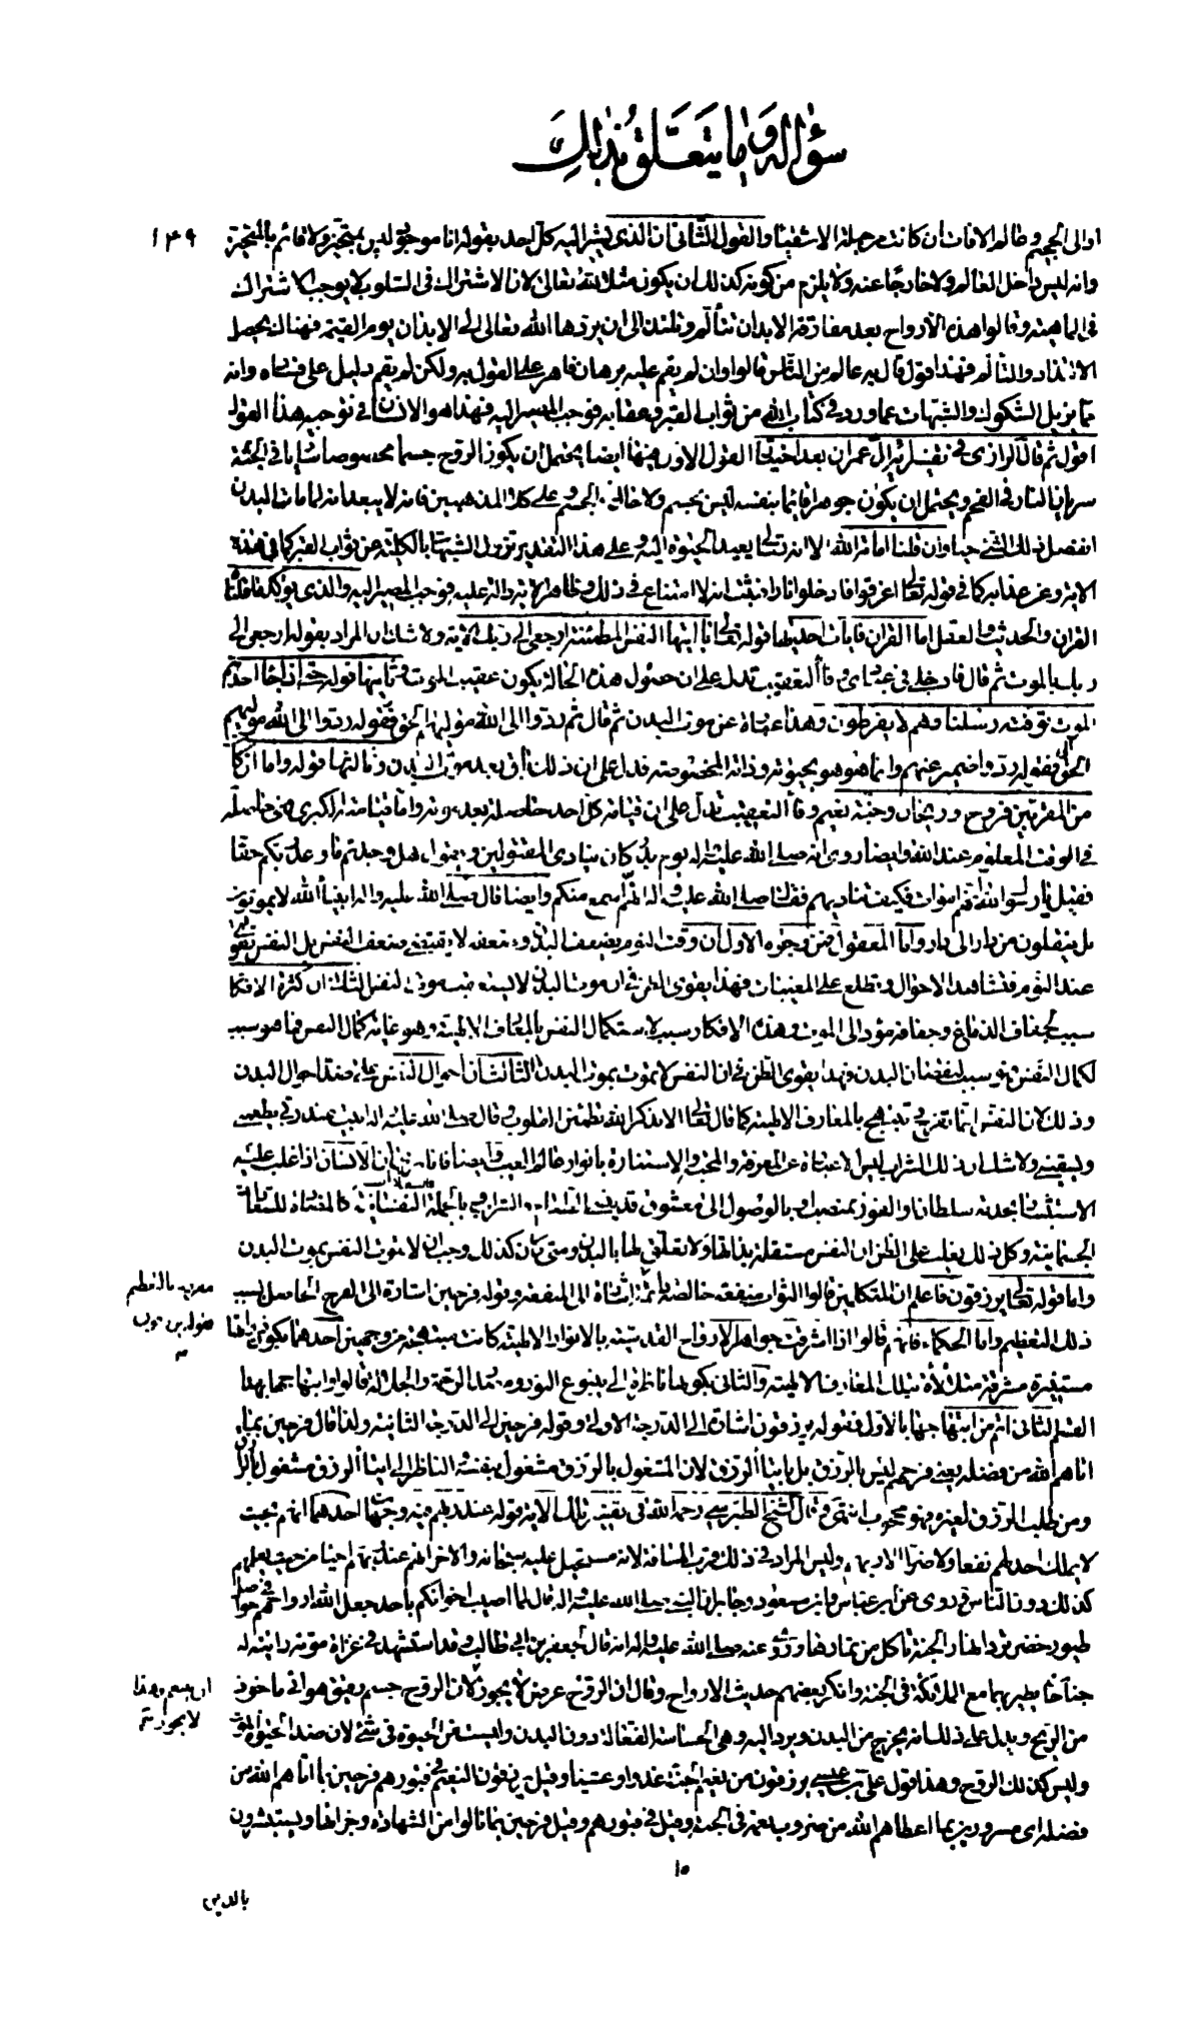 سؤاله وما يتعلق بذلك
١٣٩
او الى الجحيم وعالم الافات ان كانت من جملة الاشقياء والقول الثانى ان الذى يشير اليه كل احد بقوله انا موجود ليس بمتحيز ولا قائم بالمتحيز
وانه ليس داخل العالم ولا خارجا عنه ولا يلزم من كونه كذلك ان يكون مثل الله تعالى لان الاشتراك فى السلوب لا يوجب الاشتراك
فى الماهية وقالوا هذه الارواح بعد مفارقة الابدان تتألم وتلتذ الى ان يردها الله تعالى الى الابدان يوم القيمة فهناك يحصل
الالتذاذ والتألم فهذا قول قال به عالم من الناس قالوا وان لم يقم عليه برهان قاهر على القول به ولكن لم يقم دليل على فساده وانه
مما يزيل الشكوك والشبهات عما ورد فى كتاب الله من ثواب القبر وعقابه فوجب المصير اليه فهذا هو الاشارة فى توجيه هذا القول
اقول ثم قال الرازى فى تفسير ال عمران بعد اختيار القول الاول منها ايضا يحتمل ان يكون الروح جسما مخصوصا ساريا فى الجثة
سريان النار فى الفحم ويحتمل ان يكون جوهرا قائما بنفسه ليس بجسم ولا حال فى الجسم وعلى كلا المذهبين فانه لا يبعد انه لما مات البدن
انفصل ذلك الشئ حيا وان قلنا اماته الله الا انه تعالى يعيد الحيوة اليه وعلى هذا التقدير تزول الشبهات بالكلية عن ثواب القبر كما فى هذه
الاية وعن عذابه كما فى قوله تعالى اغرقوا فادخلوا نارا فثبت انه لا امتناع فى ذلك وظاهر الاية دال عليه فوجب المصير اليه والذى يؤكد ما قلنا
القران والحديث والعقل اما القران فايات احديها قوله تعالى يا ايتها النفس المطمئنة ارجعى الى ربك الاية ولا شك ان المراد بقوله ارجعى الى
ربك بالموت ثم قال فادخلى فى عبادى وفاء التعقيب تدل على ان حصول هذه الحالة يكون عقيب الموت وثانيها قوله حتى اذا جاء احدكم
الموت توفته رسلنا وهم لا يفرطون وهذا عبارة عن موت البدن ثم قال ثم ردوا الى الله موليهم الحق فقوله ردوا الى الله موليهم
الحق فقوله ردوا ضمير عنهم وانما هو هو بحيوته وذاته المخصوصة فدل على ان ذلك باق بعد موت البدن وثالثها قوله واما ان كان
من المقربين فروح وريحان وجنة نعيم وفاء التعقيب تدل على ان قيامة كل احد حاصلة بعد موته واما قيامته الكبرى فهى حاصلة
فى الوقت المعلوم عند الله وايضا روى انه صلى الله عليه واله يوم بدر كان ينادى المقتولين ويقول هل وجدتم ما وعد ربكم حقا
فقيل يا رسول الله انهم اموات فكيف تناديهم فقال صلى الله عليه واله انهم اسمع منكم وايضا قال صلى الله عليه واله انبياء الله لا يموتون
بل ينقلون من دار الى دار واما المعقول فمن وجوه الاول ان وقت النوم يضعف البدن وضعفه لا يقتضى ضعف النفس بل النفس تقوى
عند النوم فتشاهد الاحوال وتطلع على المغيبات فهذا يقوى الظن فى ان موت البدن لا يستعقب موت النفس الثانى ان كثرة الافكار
سبب لجفاف الدماغ وجفافه مؤد الى الموت وهذه الافكار سبب لاستكمال النفس بالمعارف الالهية وهو غاية كمال النفس فما هو سبب
لكمال النفس فهو سبب لنقصان البدن وهذا يقوى الظن فى ان النفس لا تموت بموت البدن الثالث ان احوال النفس على ضد احوال البدن
وذلك لان النفس انما تفرح وتبتهج بالمعارف الالهية كما قال تعالى الا بذكر الله تطمئن القلوب وقال صلى الله عليه واله ابيت عند ربى يطعمنى
ويسقينى ولا شك ان ذلك الشراب ليس الا عبارة عن المعرفة والمحبة والاستنارة بانوار عالم الغيب وايضا فانا نرى ان الانسان اذا غلب عليه
الاستبشار بخدمة سلطان او الفوز بمنصب او بالوصول الى معشوق قد ينسى الطعام والشراب وبالجملة السعادات النفسانية كالمضادة للسعادات
الجسمانية وكل ذلك يغلب على الظن ان النفس مستقلة بذاتها ولا تعلق لها بالبدن ومتى كان كذلك وجب ان لا تموت النفس بموت البدن
واما قوله تعالى يرزقون فاعلم ان المتكلمين قالوا الثواب منفعة خالصة دائمة اشارة الى المنفعة وقوله فرحين اشارة الى الفرح الحاصل بسبب
ذلك التعظيم واما الحكماء فانهم قالوا اذا اشرقت جواهر الارواح القدسية بالانوار الالهية كانت مبتهجة من وجهين احدهما بكون ذاتها
مستنيرة مشرقة متلألأة بتلك المعارف الالهية والثانى بكونها ناظرة الى ينبوع النور ومصدر الرحمة والجلالة قالوا وابتهاجها بهذا
القسم الثانى اتم من ابتهاجها بالاول فقوله يرزقون اشارة الى الدرجة الاولى وقوله فرحين الى الدرجة الثانية ولذا قال فرحين بما
اتاهم الله من فضله يعنى فرحهم ليس بالرزق بل بايتاء الرزق لان المشغول بالرزق مشغول بنفسه والناظر الى ايتاء الرزق مشغول بالرازق
ومن طلب الرزق لغيره فهو محجوب انتهى وقال الشيخ الطبرسى رحمه الله فى تفسير تلك الاية قوله عند ربهم فيه وجهان احدهما انهم بحيث
لا يملك احد لهم نفعا ولا ضرا الا ربهم وليس المراد فى ذلك قرب المسافة لانه مستحيل عليه سبحانه والاخر انهم عند ربهم احياء من حيث يعلمهم
كذلك دون الناس وروى عن ابن عباس وابن مسعود وجابر ان النبى صلى الله عليه واله قال لما اصيب اخوانكم باحد جعل الله ارواحهم فى حواصل
طيور خضر ترد انهار الجنة وتاكل من ثمارها وروى عنه صلى الله عليه واله انه قال لجعفر بن ابى طالب وقد استشهد فى غزاة موتة رايته له
جناحان يطير بهما مع الملائكة فى الجنة وانكر بعضهم حديث الارواح وقال ان الروح عرض لا يجوز لان الروح جسم رقيق هوائى ماخوذ
من الريح ويدل على ذلك انه يخرج من البدن ويرد اليه وهى الحساسة الفعالة دون البدن وليست من الحيوة فى شئ لان ضد الحيوة الموت
وليس كذلك الروح وهذا قول على بن عيسى يرزقون من نعيم الجنة غدوا وعشيا وقيل يرزقون النعيم فى قبورهم فرحين بما اتاهم الله من
فضله اى مسرورين بما اعطاهم الله من ضروب نعمه فى الجنة وقيل فى قبورهم وقيل فرحين بما نالوا من الشهادة وجزائها ويستبشرون
١٥
بالذين
مقرونة بالتعظيم
فقوله يرزقون
ان يتنعم وهذا
لا يجوز